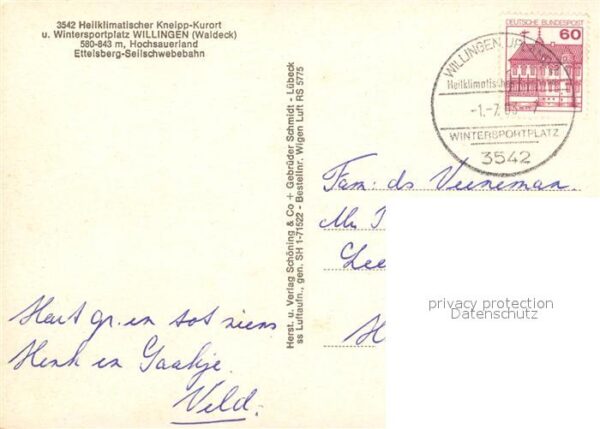 3542 Heilklimatischer Kneipp-Kurort
u. Wintersportplatz WILLINGEN (Waldeck)
580-843 m, Hochsauerland
Ettelsberg-Seilschwebebahn
Herst. u. Verlag Schöning & Co + Gebrüder Schmidt - Lübeck
ss Luftaufn., gen. SH 1-71522 - Bestellnr. Wigen Luft RS 5775
DEUTSCHE BUNDESPOST
60
WILLINGEN, UPLAND
Heilklimatischer
-1.-7.
WINTERSPORTPLATZ
3542
Fam: ds Veeneman.
Lee
H
privacy protection
Datenschutz
Hart gr. en tot ziens
Henk en Gaatje
Veld.